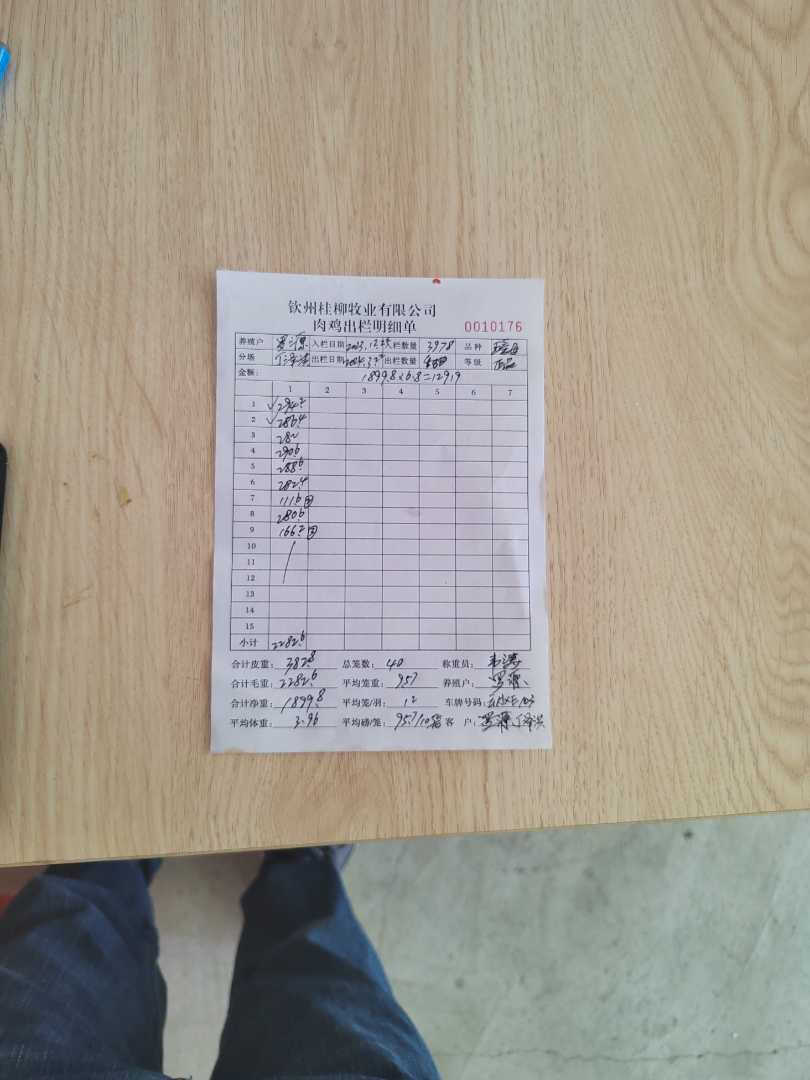 钦州桂柳牧业有限公司
肉鸡出栏明细单 0010176
养殖户 入栏日期 2023.12. 入栏数量 3978 品种
分场 出栏日期 出栏数量 等级 正品
金额: 1899.8×6.8=12919
1 2 3 4 5 6 7
1 294.2
2 286.4
3 282
4 290.6
5 288.6
6 282.4
7 111.6
8 280.6
9 166.2
10
11
12
13
14
15
小计 2282.6
合计皮重: 382.8 总笼数: 40 称重员:
合计毛重: 2282.6 平均笼重: 9.57 养殖户:
合计净重: 1899.8 平均笼/羽: 12 车牌号码:
平均体重: 3.96 平均磅/笼: 95.7/10笼 客 户: